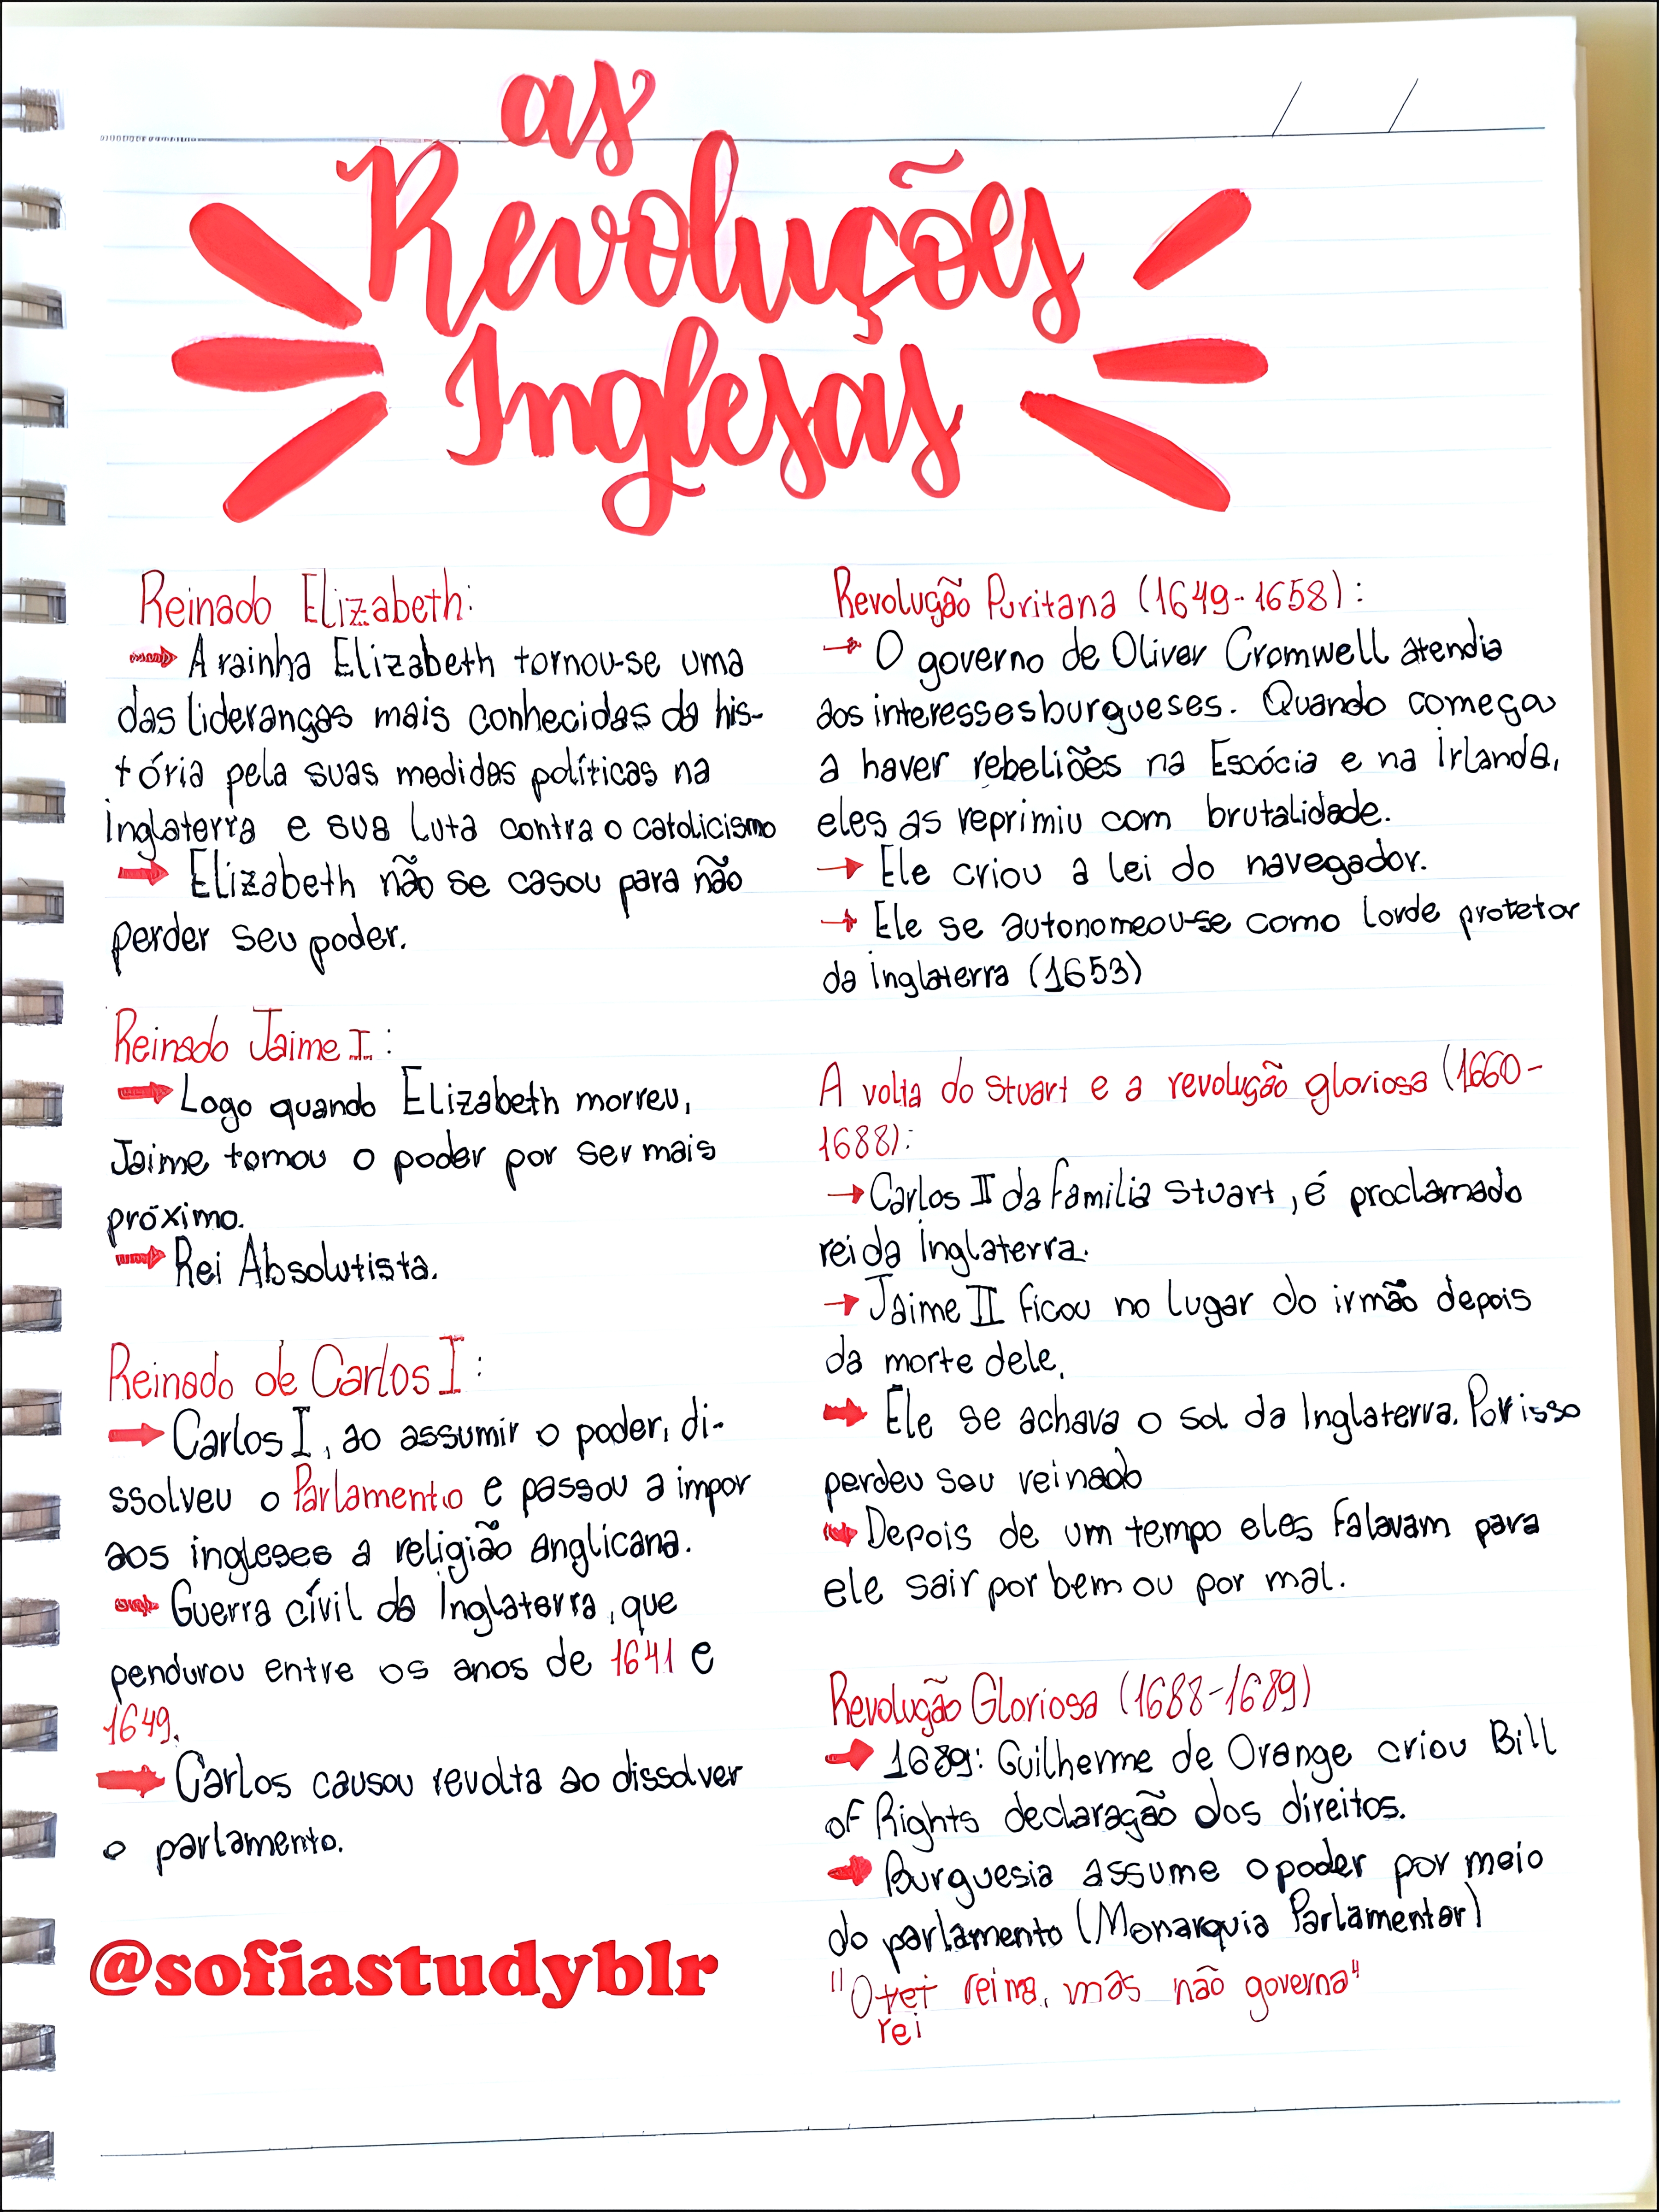 as
Revoluções
Inglesas
Reinado Elizabeth:
→ A rainha Elizabeth tornou-se uma
das lideranças mais conhecidas da his-
tória pela suas medidas políticas na
inglaterra e sua luta contra o catolicismo
→ Elizabeth não se casou para não
perder seu poder.
Reinado Jaime I:
→ Logo quando Elizabeth morreu,
Jaime tomou o poder por ser mais
próximo.
→ Rei Absolutista.
Reinado de Carlos I:
→ Carlos I, ao assumir o poder, di-
ssolveu o Parlamento e passou a impor
aos ingleses a religião Anglicana.
→ Guerra cívil da Inglaterra, que
pendurou entre os anos de 1641 e
1649.
→ Carlos causou revolta ao dissolver
o parlamento.
@sofiastudyblr
Revolução Puritana (1649-1658):
→ O governo de Oliver Cromwell atendia
aos interesses burgueses. Quando começa
a haver rebeliões na Escócia e na irlanda,
eles as reprimiu com brutalidade.
→ Ele criou a lei do navegador.
→ Ele se autonomeou-se como lorde protetor
da inglaterra (1653)
A volta do Stuart e a revolução gloriosa (1660-
1688):
→ Carlos II da familia Stuart, é proclamado
rei da inglaterra.
→ Jaime II ficou no lugar do irmão depois
da morte dele.
→ Ele se achava o sol da Inglaterra. Por isso
perdeu seu reinado
→ Depois de um tempo eles falavam para
ele sair por bem ou por mal.
Revolução Gloriosa (1688-1689)
→ 1689: Guilherme de Orange criou Bill
of Rights declaração dos direitos.
→ Burguesia assume o poder por meio
do parlamento (Monarquia Parlamentar)
"O rei reina, mas não governa"
rei